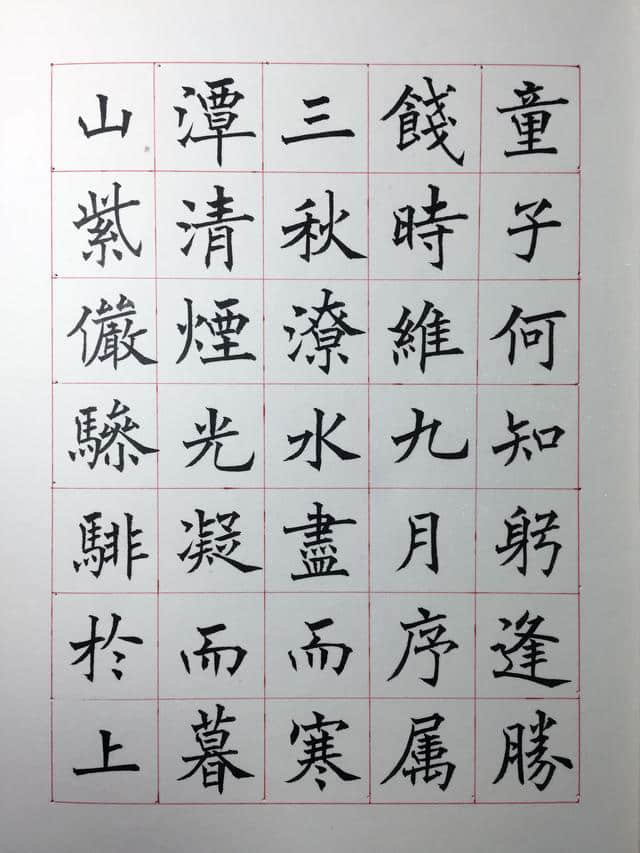 童子何知躬逢勝
餞時維九月序属
三秋潦水盡而寒
潭清煙光凝而暮
山紫儼驂騑於上